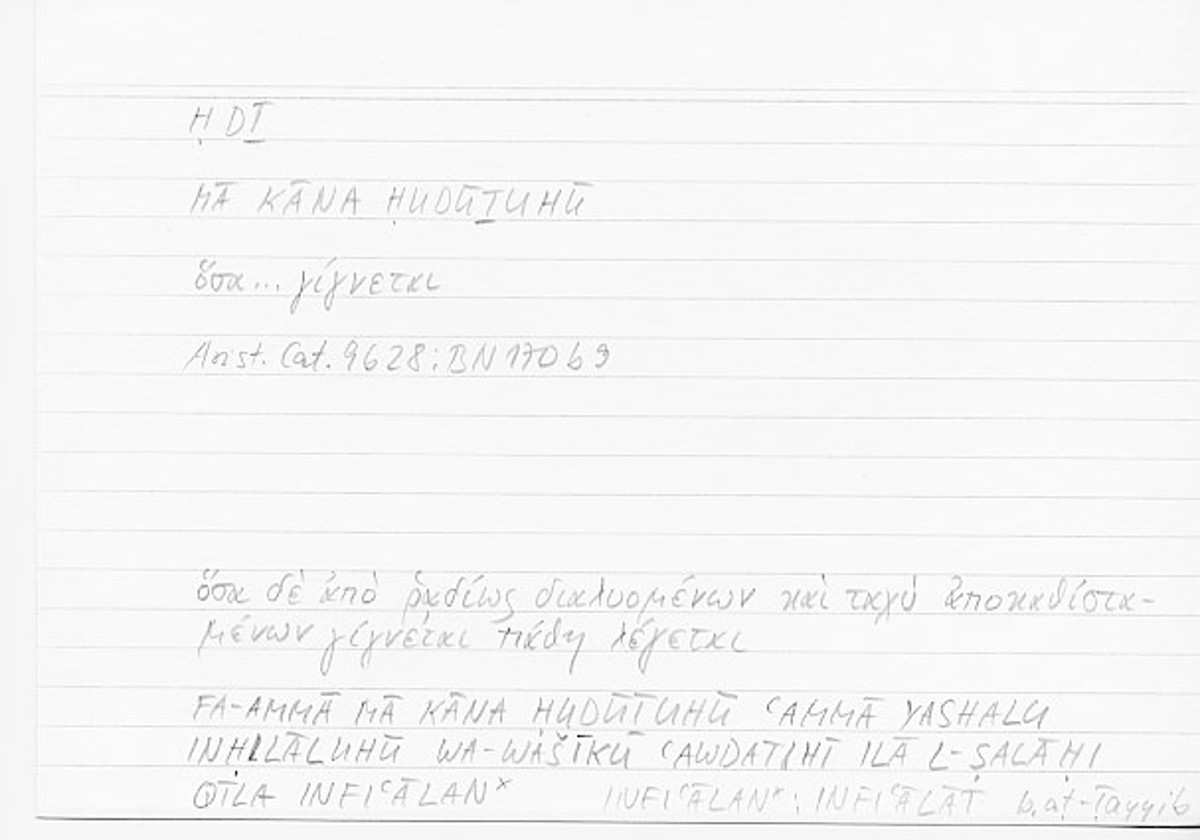 Ḥ D Ṯ
MĀ KĀNA ḤUDŪṮUHŪ
ὅσα... γίγνεται
Arist. Cat. 9b28; BN 170b9
ὅσα δὲ ἀπὸ ῥᾳδίως διαλυομένων καὶ ταχὺ ἀποκαθιστα-
μένων γίγνεται πάθη λέγεται
FA-AMMĀ MĀ KĀNA ḤUDŪṮUHŪ ʿAMMĀ YASHALU
INḤILĀLUHŪ WA-WAŠĪKU ʿAWDATIHĪ ILĀ L-ṢALĀḤI
QĪLA INFIʿĀLAN* INFIʿĀLAN* : INFIʿĀLĀT b. aṭ-Ṭayyib